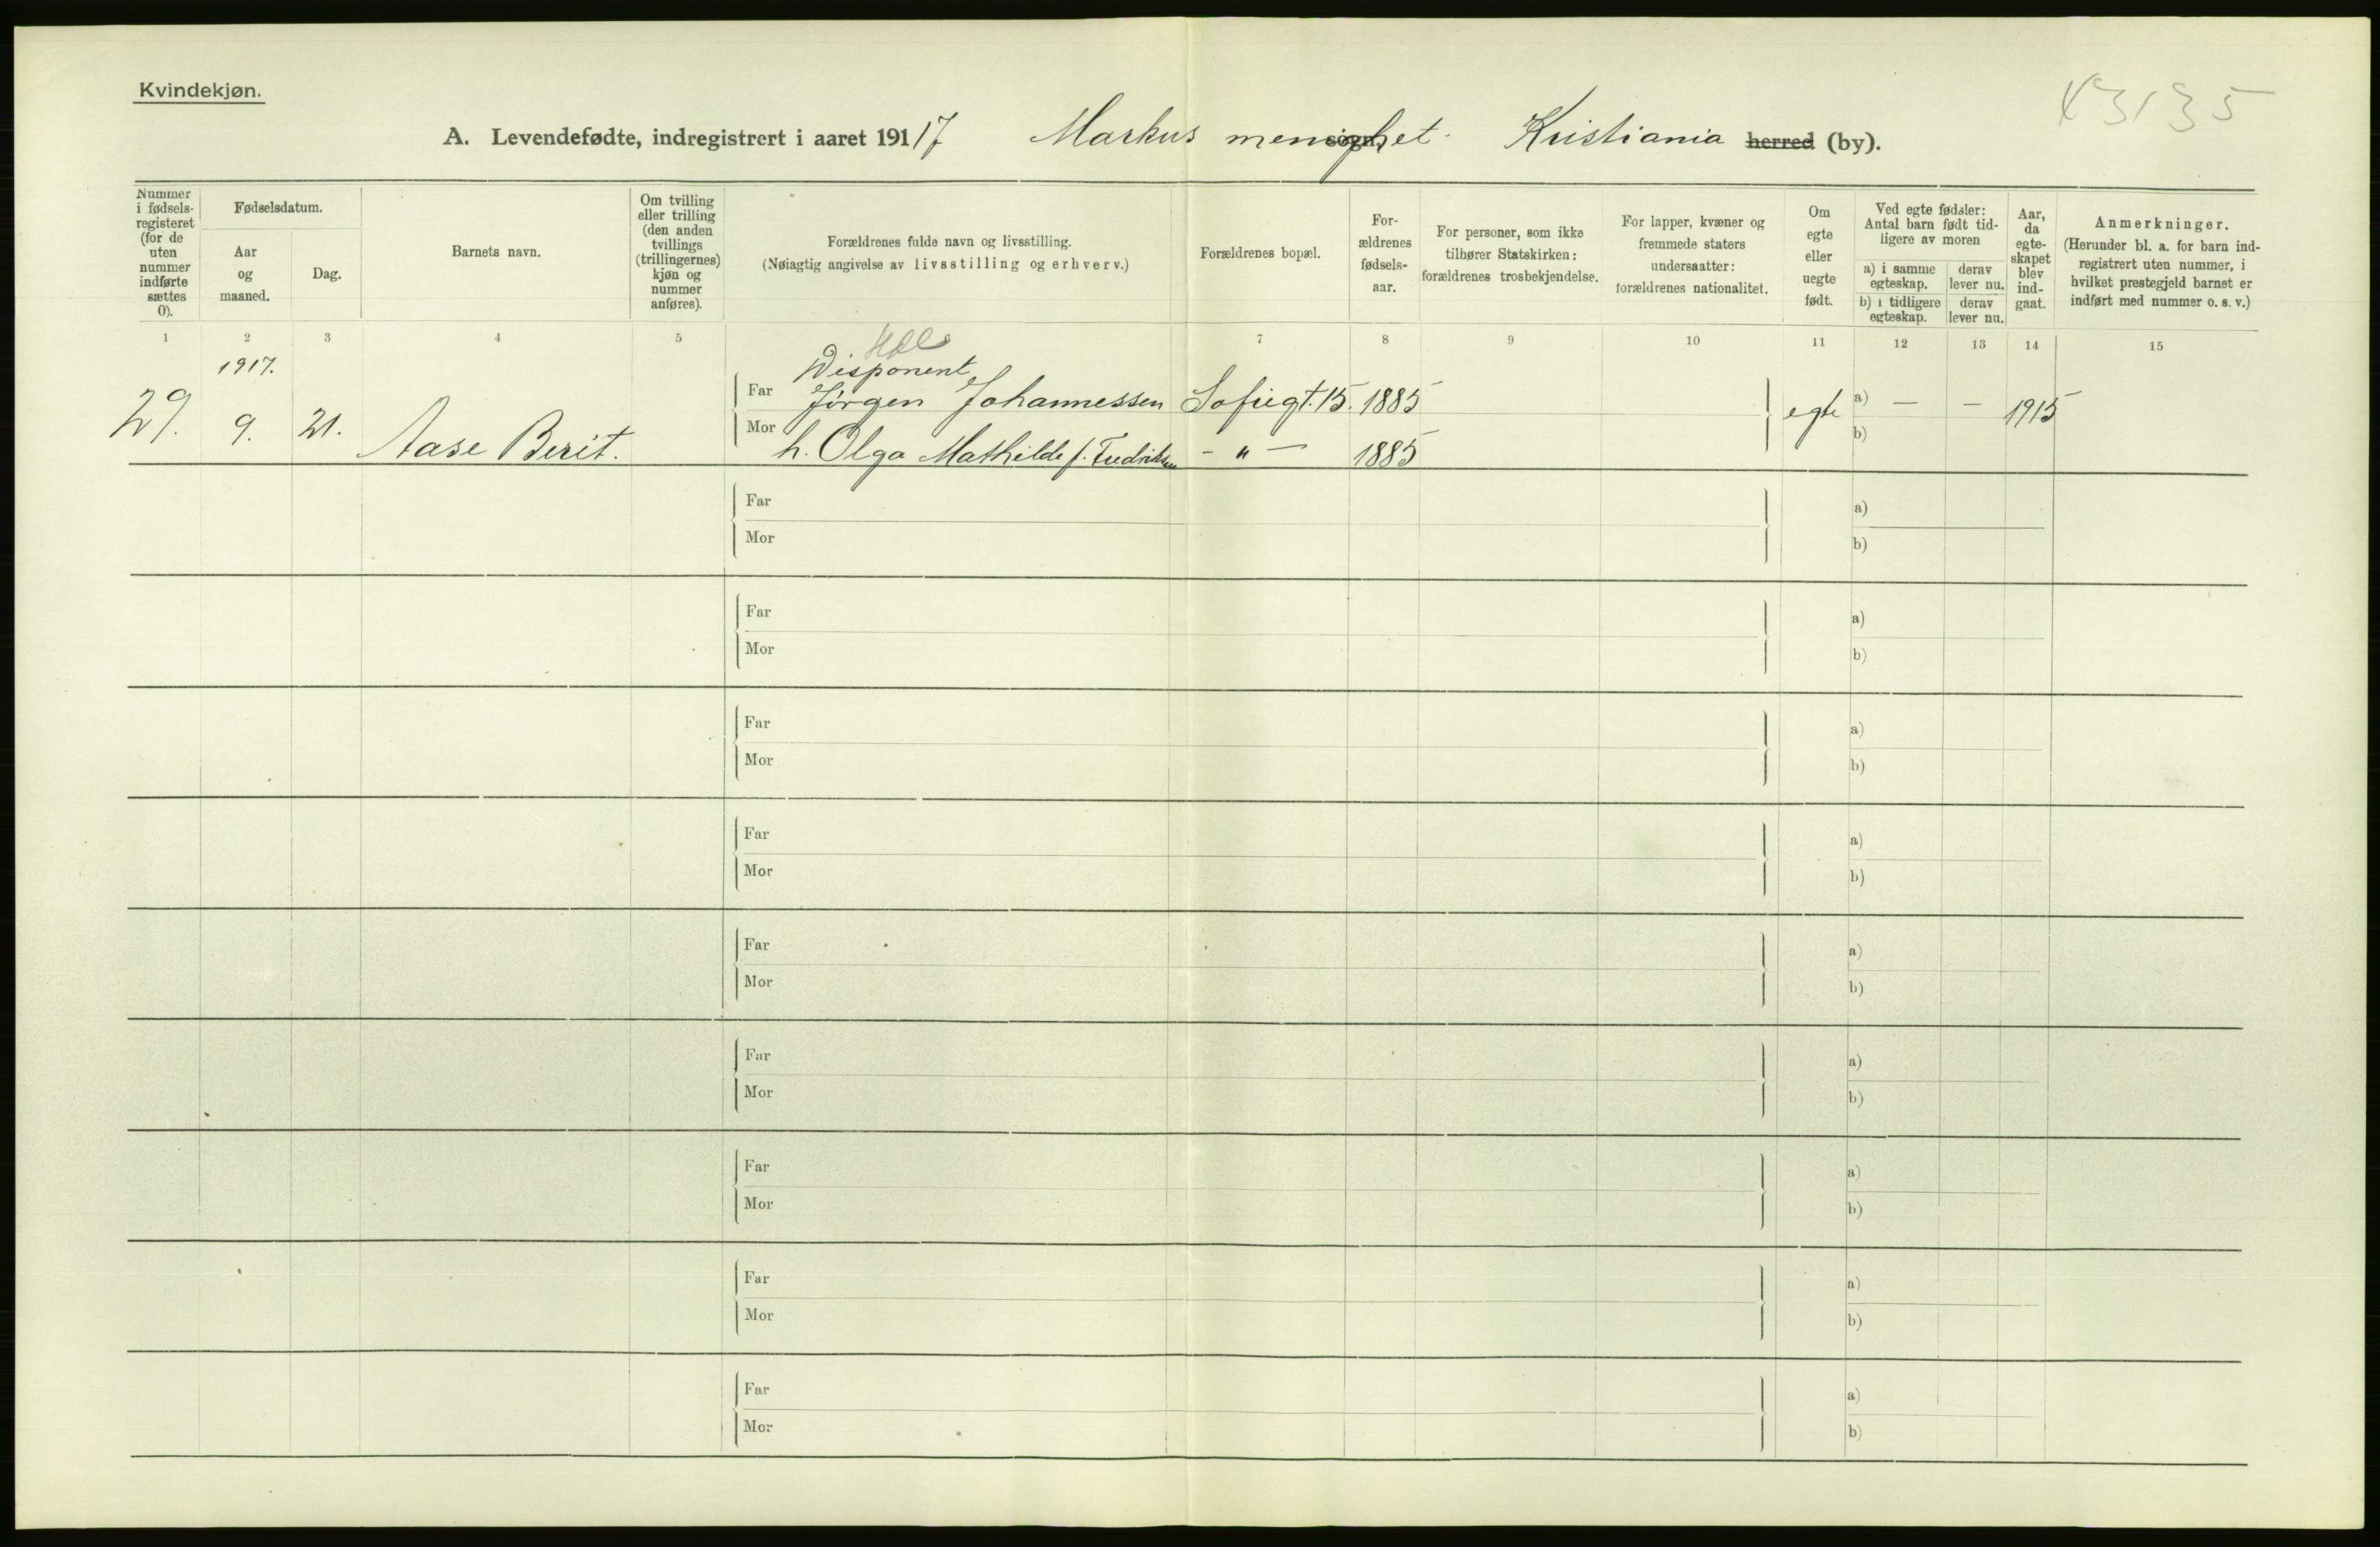 Kvindekjøn.
A. Levendefødte, indregistrert i aaret 19117 Markus menighet Kristiania herred (by).
Nummer i fødsels-registeret (for de uten nummer indførte sættes 0).
Fødselsdatum.
Aar og maaned.
Dag.
Barnets navn.
Om tvilling eller trilling (den anden tvillings (trillingernes) kjøn og nummer anføres).
Forældrenes fulde navn og livsstilling.
(Nøiagtig angivelse av livsstilling og erhverv.)
Forældrenes bopæl.
For-ældrenes fødsels-aar.
For personer, som ikke tilhører Statskirken: forældrenes trosbekjendelse.
For lapper, kvæner og fremmede staters undersaatter: forældrenes nationalitet.
Om egte eller uegte født.
Ved egte fødsler: Antal barn født tid-ligere av moren
a) i samme egteskap.
derav lever nu.
b) i tidligere egteskap.
derav lever nu.
Aar, da egte-skapet blev ind-gaat.
Anmerkninger.
(Herunder bl. a. for barn ind-registrert uten nummer, i hvilket prestegjeld barnet er indført med nummer o. s. v.)
1 2 3 4 5 7 8 9 10 11 12 13 14 15
1917.
Disponent
29. 9. 21. Aase Berit. Far Jörgen Johannessen Sofiegt. 15. 1885 egte a) — — 1915
Mor h. Olga Mathilde f. Fredriksen - " - 1885 b)
Far a)
Mor b)
Far a)
Mor b)
Far a)
Mor b)
Far a)
Mor b)
Far a)
Mor b)
Far a)
Mor b)
Far a)
Mor b)
Far a)
Mor b)
Far a)
Mor b)